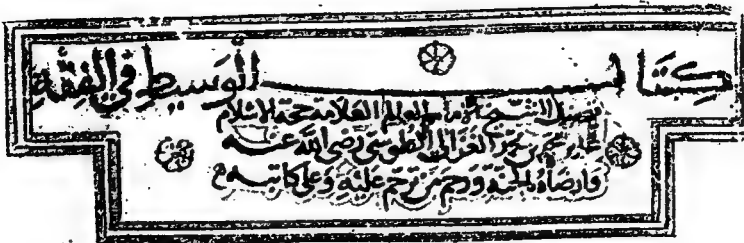 كتاب الوسيط في الفقه
تصنيف الشيخ الامام العالم العلامة حجة الاسلام
محمد بن محمد الغزالي الطوسي رضي الله عنه
وارضاه الجنة ورحم من ترحم عليه وعلى كاتبه